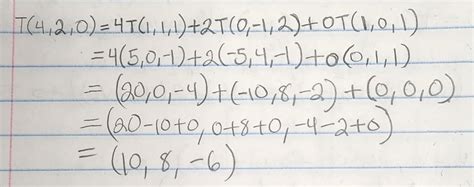 T(4,2,0)=4T(1,1,1)+2T(0,-1,2)+0T(1,0,1)
=4(5,0,-1)+2(-5,4,-1)+0(0,1,1)
=(20,0,-4)+(-10,8,-2)+(0,0,0)
=(20-10+0,0+8+0,-4-2+0)
=(10,8,-6)